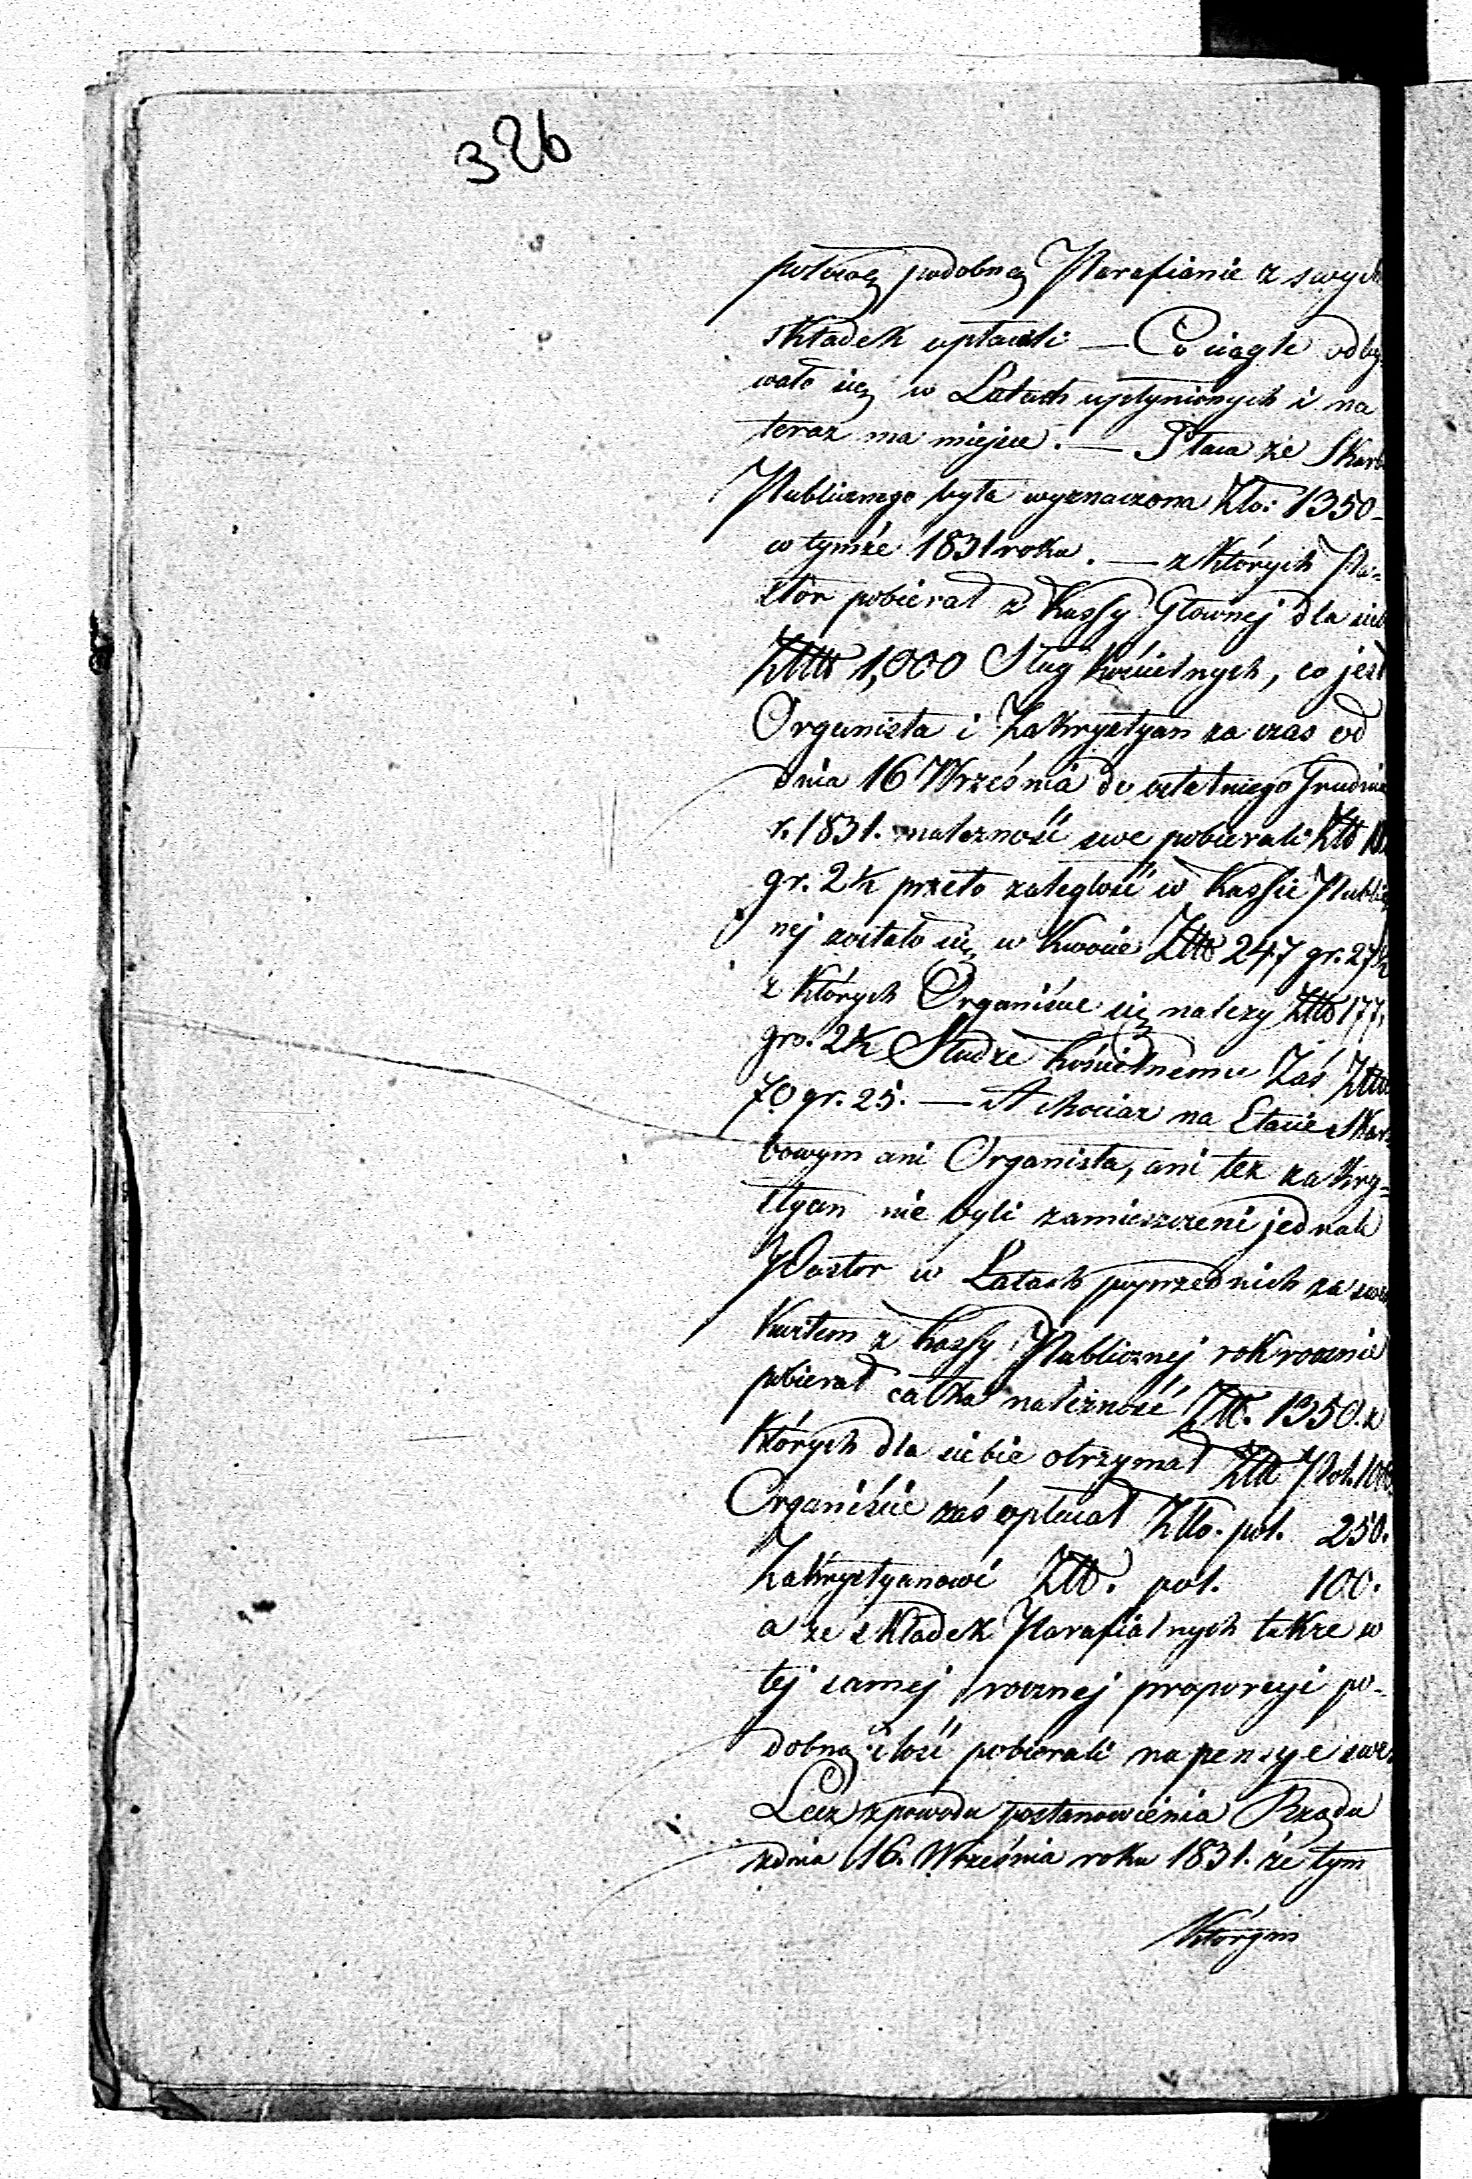 326
połowę podobną Parafianie z swych
składek opłacili — Co ciągle odby
wało się w Latach upłynionych i na
teraz ma miejsce. — Płaca ze Skar
Publicznego była wyznaczona Zło: 1350-
w tymże 1831 roku. — z których Pa-
stor pobierał z Kassy Głownej dla sieb
Złłł 1,000 Sług kościelnych, co jest
Organista i Zakrystyan za czas od
dnia 16 Września do ostatniego Grudnia
r. 1831. należność swe pobierali Złł
gr. 2½ przeto zaległość w Kassie Public
nej zostało się w kwocie Złłł 247 gr. 27½
z których Organiście się należy Złł 177.
gro. 2½ Słudze kościelnemu Zaś Złł
70 gr. 25. — A chociaż na Etacie Skar
bowym ani Organista, ani też zakry-
styan nie byli zamieszczeni jednak
Pastor w Latach poprzednich za swem
Kwitem z kassy Publicznej rok rocznie
pobierał całka należność Złł. 1350. z
których dla siebie otrzymał Złł Pol. 1000.
Organiście zaś opłacał Zło. pol. 250.
Zakrystyanowi Złł. pol. 100.
a ze składek Parafialnych także w
tej samej rocznej proporcyi po-
dobną ilość pobierali na pensye swe
Lecz z powodu postanowienia Rządu
z dnia 16. Września roku 1831. że tym
którym